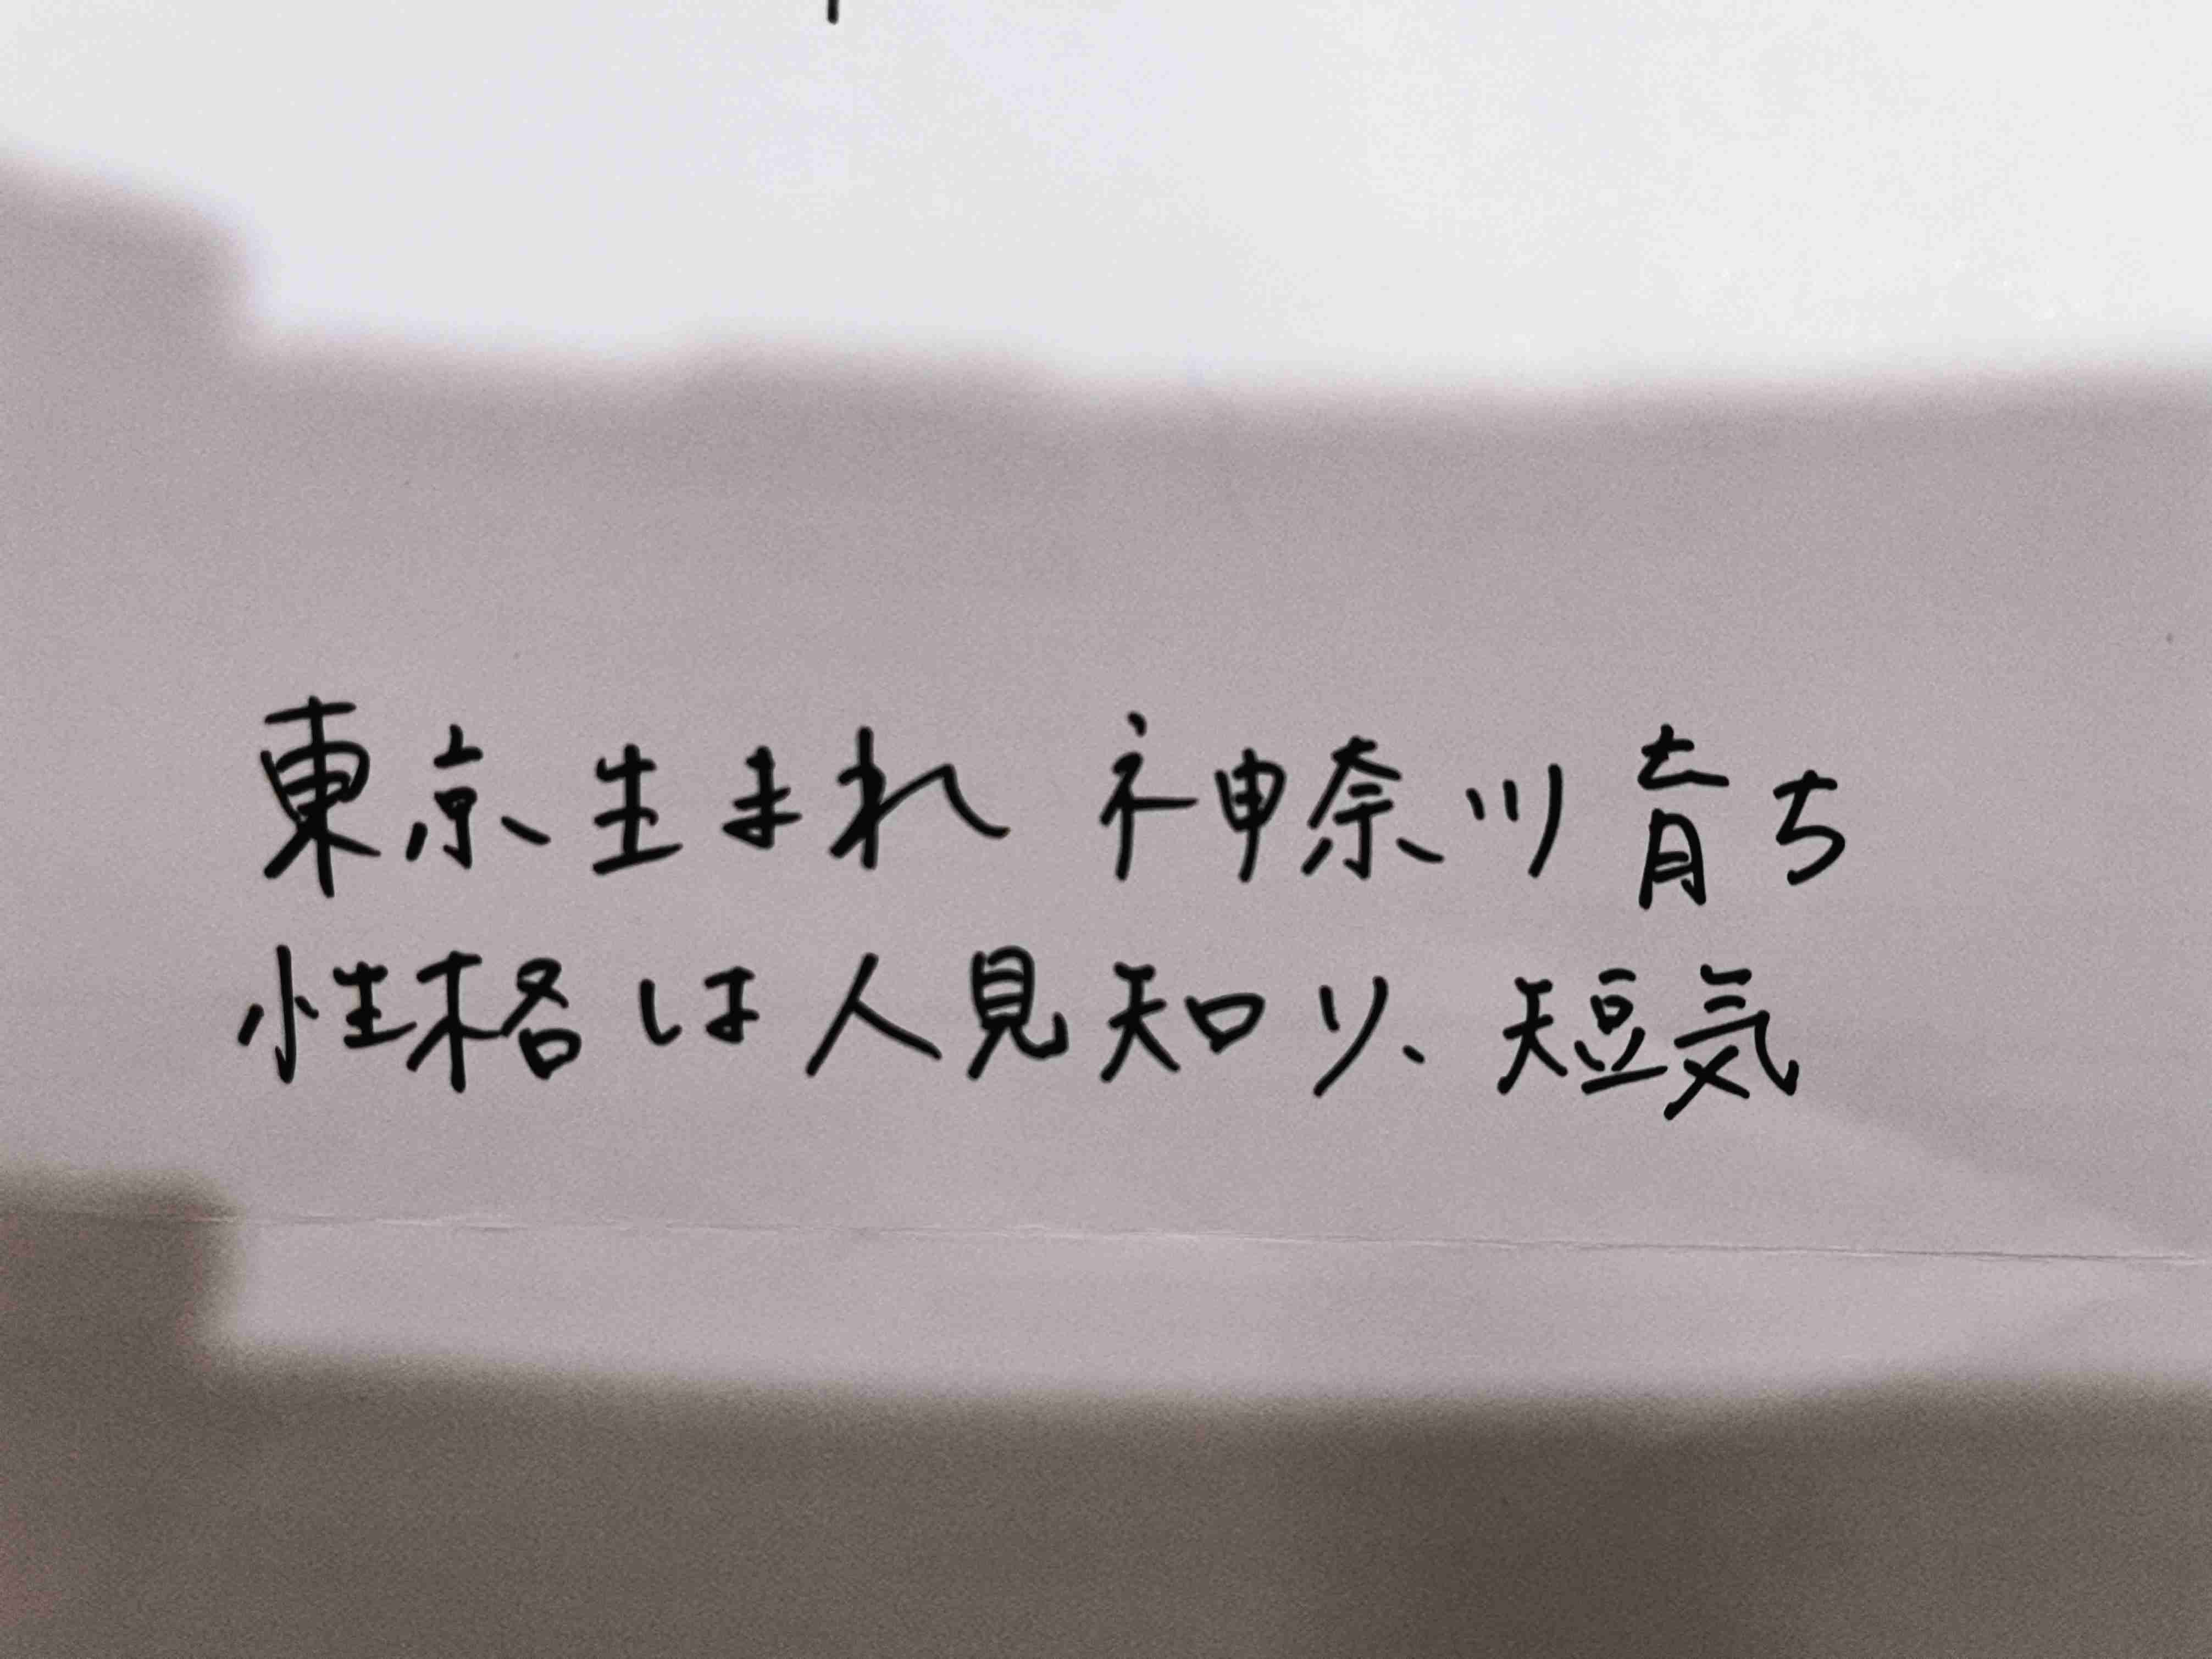 東京生まれ 神奈川育ち
性格は人見知り、短気